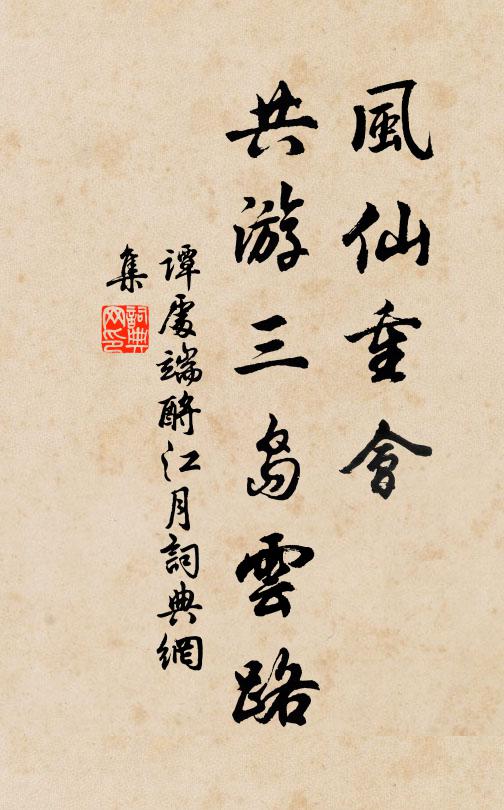 風仙重會
共游三島雲路
譚處端酹江月詞典網
集
詞典网印